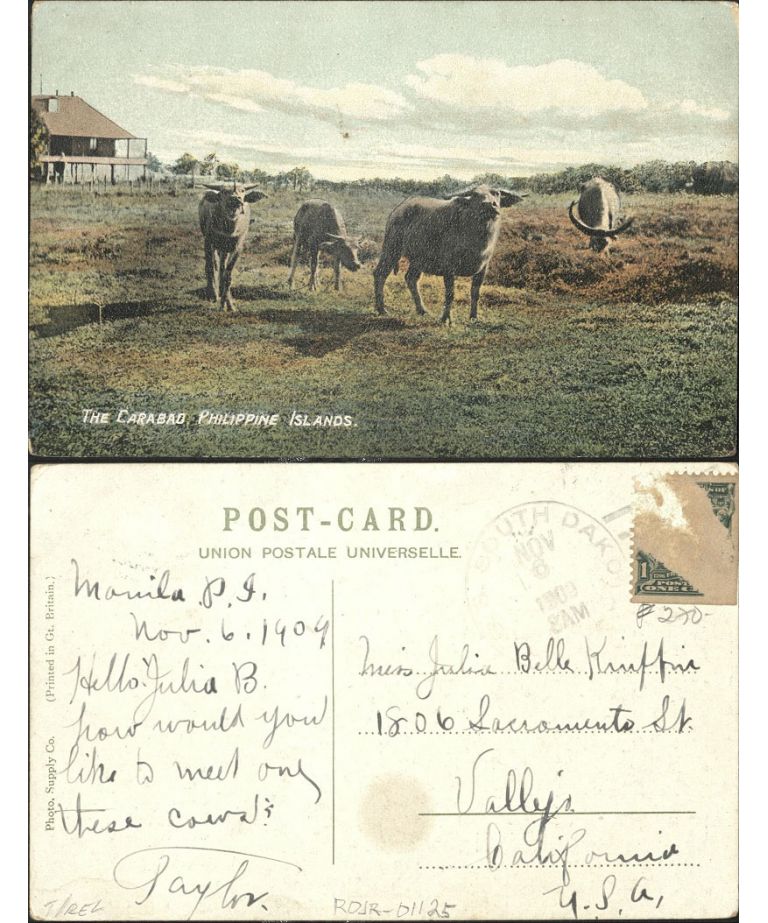 THE CARABAO, PHILIPPINE ISLANDS.
POST-CARD.
UNION POSTALE UNIVERSELLE.
SOUTH DAKO
NOV
6
1909
8AM
1
POST
ONE C
₱270-
Photo. Supply Co. (Printed in Gt. Britain.)
Manila P.I.
Nov. 6. 1909
Hello Julia B.
how would you
like to meet one
these cows?
Taylor.
Miss Julia Belle Kniffin
1806 Sacramento St.
Vallejo
California
U.S.A,
T/REL
ROSR-D1125